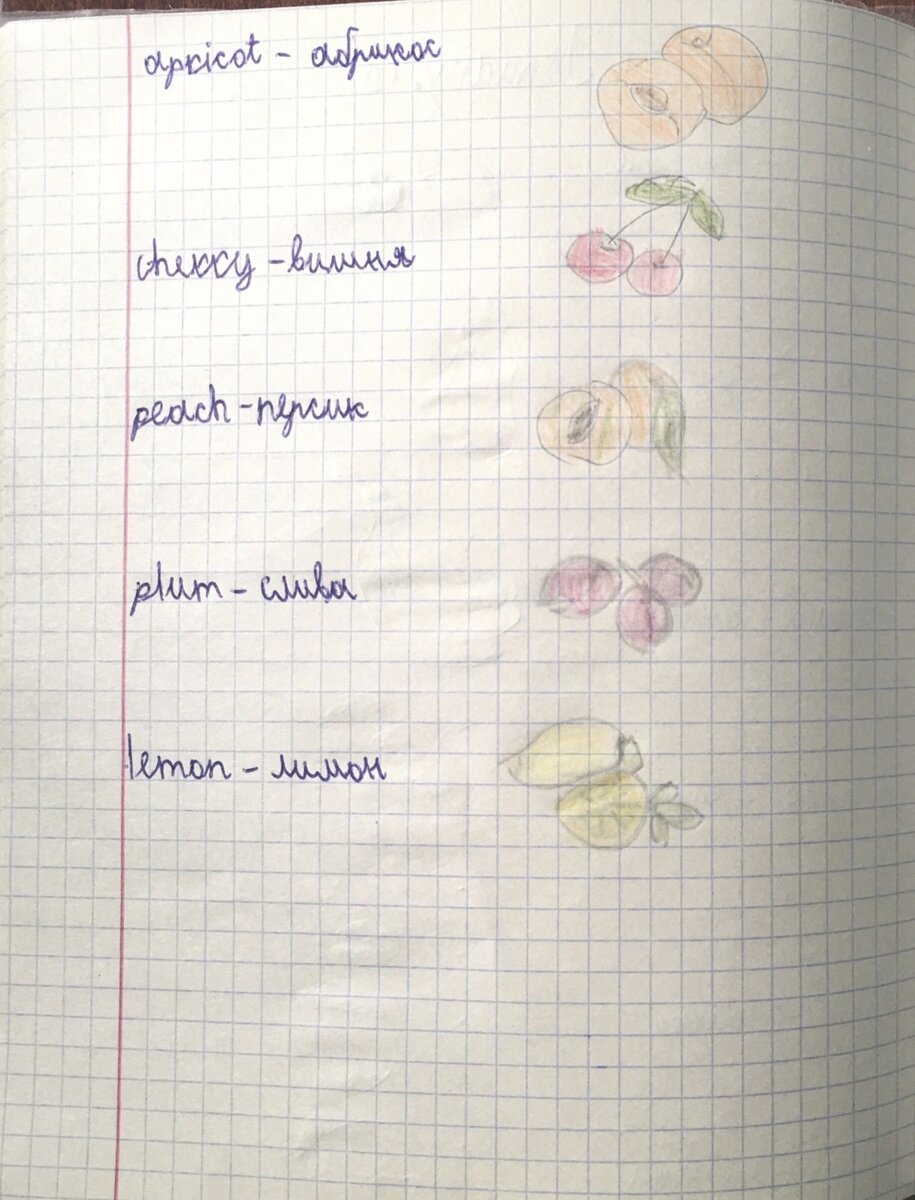 apricot - абрикос
cherry - вишня
peach - персик
plum - слива
lemon - лимон